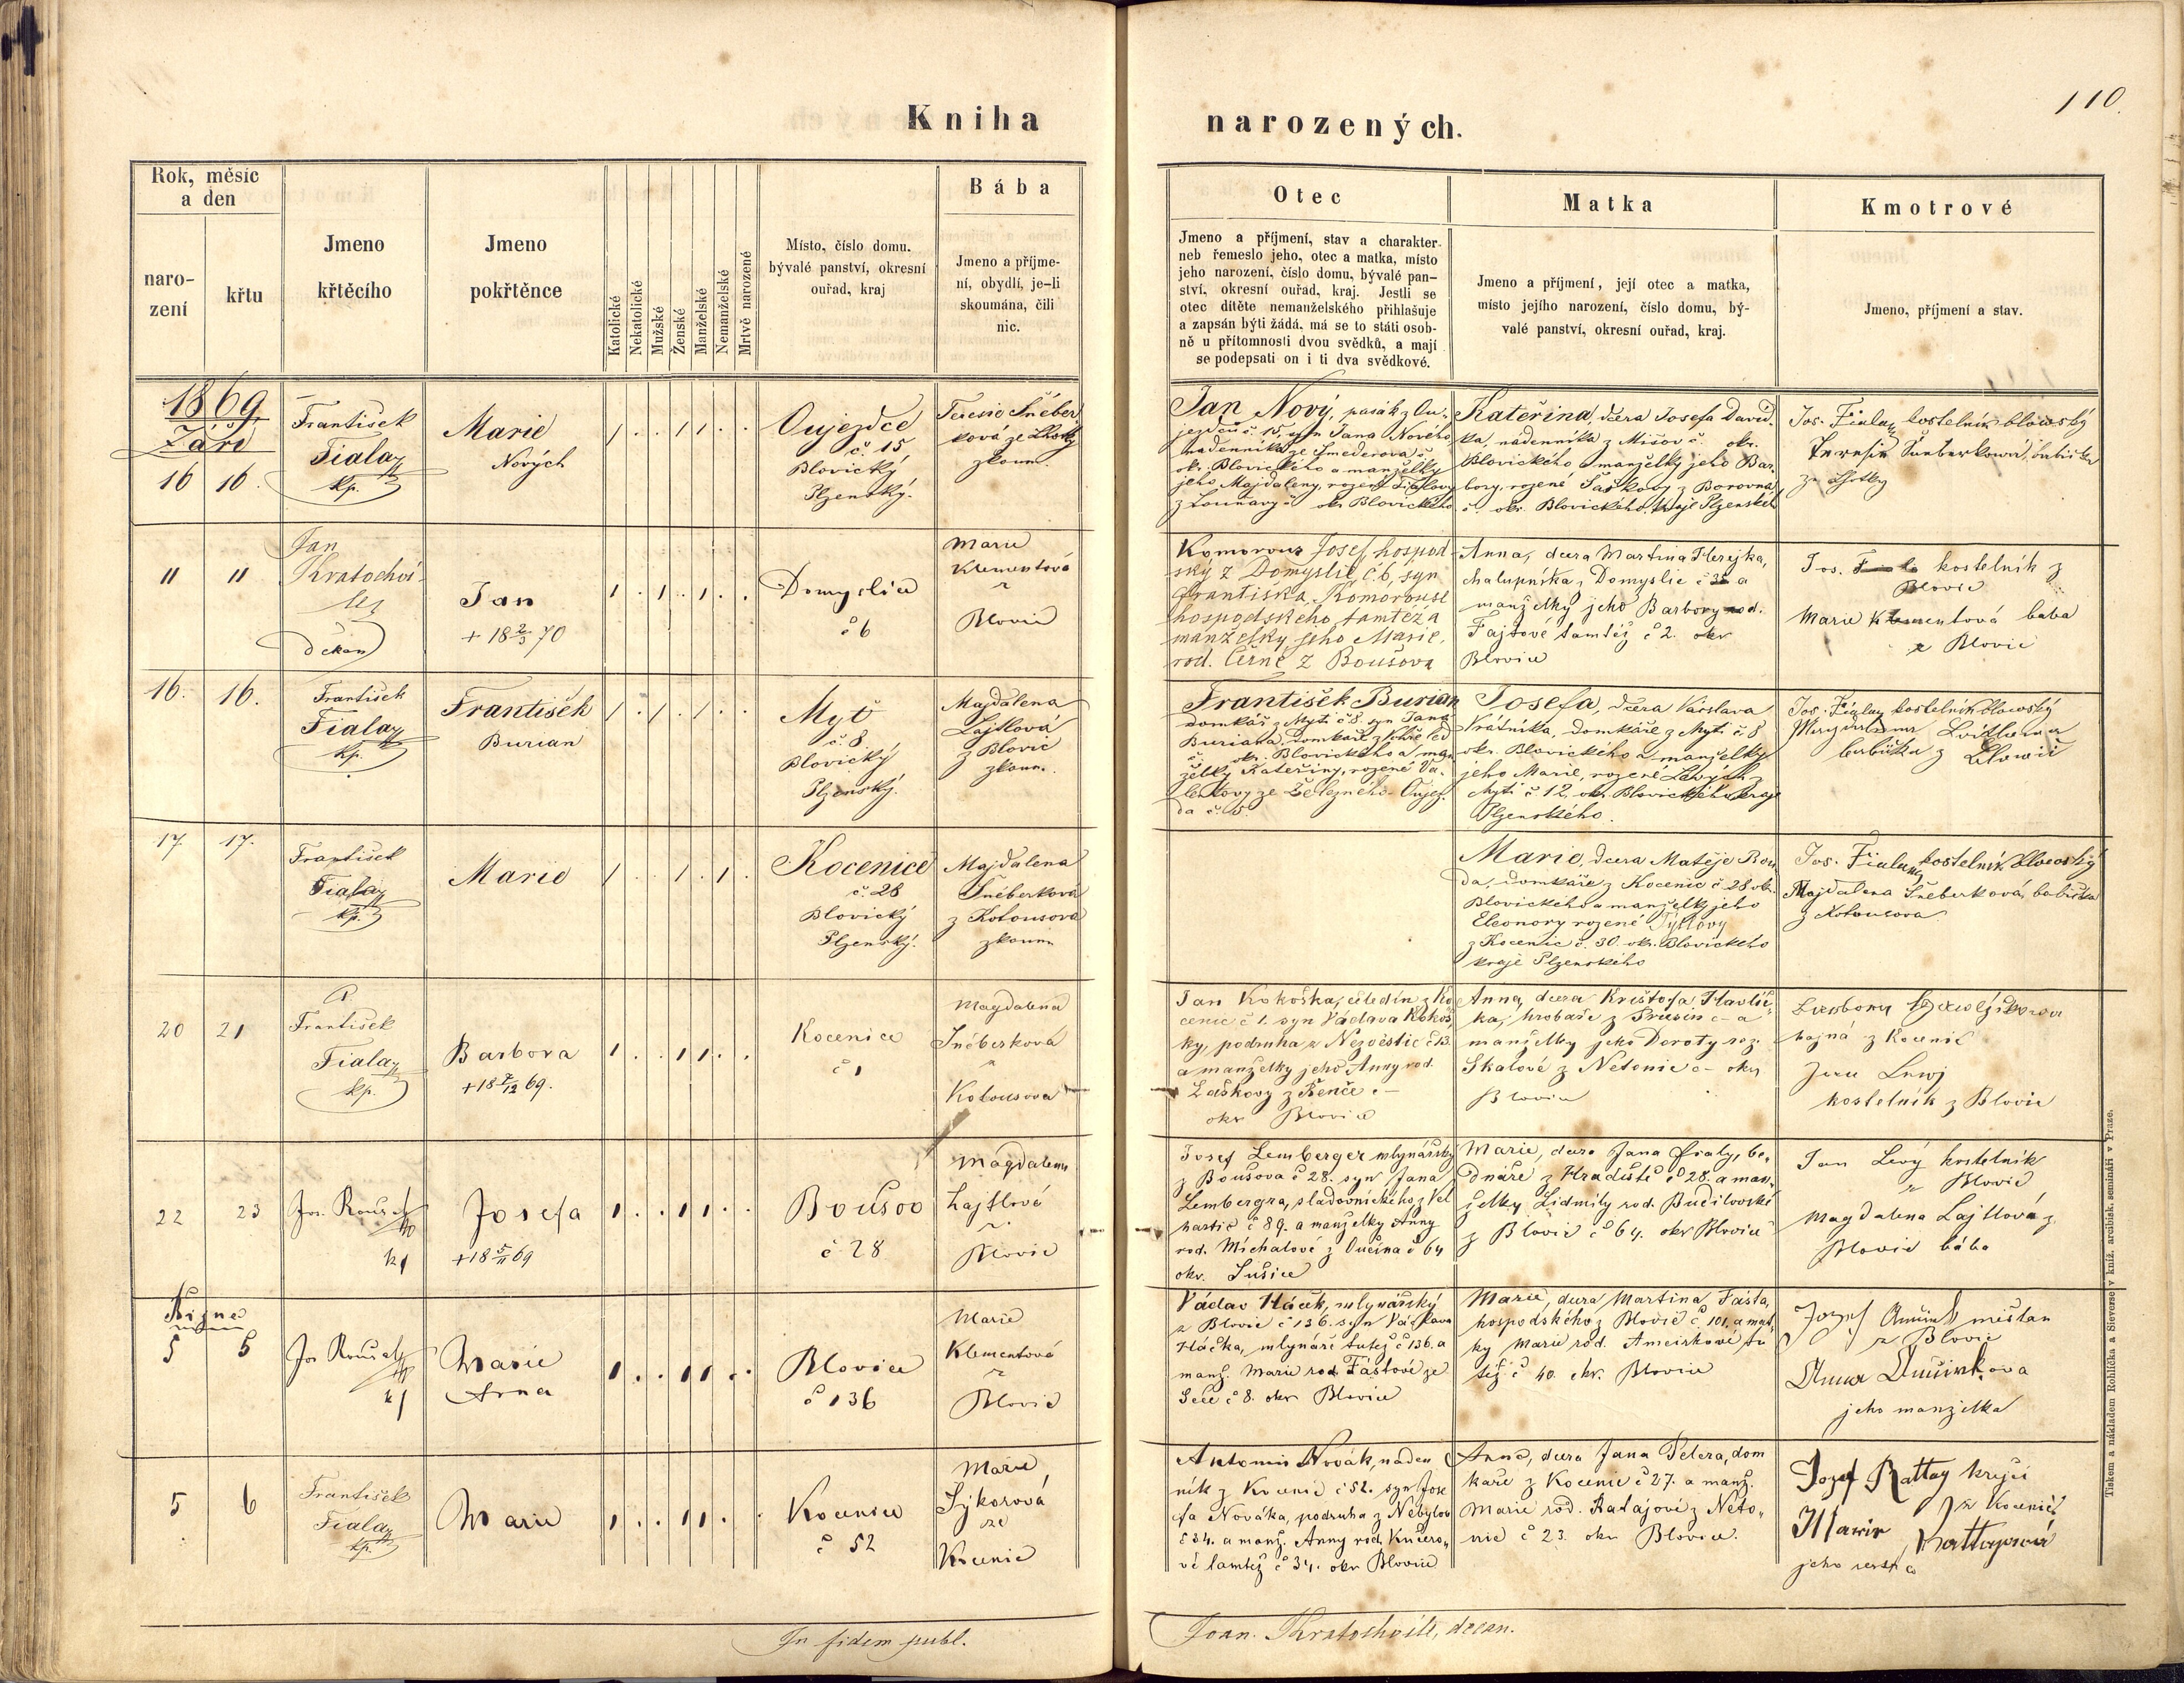 110.
Kniha
narozených.
Rok, měsíc
a den
naro-
zení
křtu
Jmeno
křtěcího
Jmeno
pokřtěnce
Katolické
Nekatolické
Mužské
Ženské
Manželské
Nemanželské
Mrtvě narozené
Místo, číslo domu.
bývalé panství, okresní
ouřad, kraj
Bába
Jmeno a příjme-
ní, obydlí, je-li
skoumána, čili
nic.
Otec
Jmeno a příjmení, stav a charakter
neb řemeslo jeho, otec a matka, místo
jeho narození, číslo domu, bývalé pan-
ství, okresní ouřad, kraj. Jestli se
otec dítěte nemanželského přihlašuje
a zapsán býti žádá, má se to státi osob-
ně u přítomnosti dvou svědků, a mají
se podepsati on i ti dva svědkové.
Matka
Jmeno a příjmení, její otec a matka,
místo jejího narození, číslo domu, bý-
valé panství, okresní ouřad, kraj.
Kmotrové
Jmeno, příjmení a stav.
1869
Září
16 16.
František
Fiala
kp.
Marie
Nových
Oujezdce
č. 15
Blovický
Plzenský.
Teresie Šneber
ková ze Lhotky
zkoum.
Jan Nový, pasák z Ou-
jezdců č. 15, syn Jana Nového
nádenníka ze Smederova č.
okr. Blovického a manželky
jeho Majdaleny, rozené Fialovy
z Louňavy č. okr. Blovického
Kateřina, dcera Josefa David-
ka, nádenníka z Mišov č. okr.
Blovického a manželky jeho Bar-
bory, rozené Šaškovy z Borovna
č. okr. Blovického, kraje Plzenského
Jos. Fiala kostelník blovský
Teresie Šneberková, babička
ze Lhotky
11 11
Jan
Kratochví-
le
děkan
Jan
+ 18 2/3 70
Domyslice
č 6
Marie
Klementová
z
Blovic
Komorous Josef hospod-
ský z Domyslic č. 6, syn
Františka Komorouse
hospodského tamtéž a
manželky jeho Marie,
rod. Černé z Boušova
Anna, dcera Martina Herejka,
chalupníka z Domyslic č 35 a
manželky jeho Barbory rod.
Fajtové tamtéž č 2. okr
Blovice
Jos. Fiala kostelník z
Blovic
Marie Klementová baba
z Blovic
16. 16.
František
Fiala
kp.
František
Burian
Mýť
č. 8.
Blovický
Plzenský.
Majdalena
Lajtlová
z Blovic
zkoum.
František Burian
domkář z Mýti č 8. syn Jana
Buriana, domkáře z
č. okr. Blovického a man-
želky Kateřiny, rozené Va-
lentovy ze Železného Oujez-
da č. 15.
Josefa, dcera Václava
Vrátníka, domkáře z Mýti č. 8
okr. Blovického a manželky
jeho Marie, rozené Lavých z
Mýti č. 12, okr. Blovického kraje
Plzenského.
Jos. Fiala kostelník blovský
Magdalena Lajtlová
babička z Blovic
17. 17.
František
Fiala
kp.
Marie
Kocenice
č. 28
Blovický
Plzenský.
Majdalena
Šneberková
z Kotousova
zkoum
Marie, dcera Matěje Bou
da, domkáře z Kocenic č 28 okr.
Blovického a manželky jeho
Eleonory rozené Týtlovy
z Kocenic č. 30. okr. Blovického
kraje Plzenského
Jos. Fiala kostelník blovský
Majdalena Šneberková, babička
z Kotousova
20 21
P.
František
Fiala
kp.
Barbora
+ 18 7/12 69.
Kocenice
č 1
Magdalena
Šnéberková
z
Kotousova
Jan Kokoška, čeledín z Ko
cenic č 1. syn Václava Kokoš,
ky, podruha z Nezvěstic č 13.
a manželky jeho Anny rod.
Laškovy z Řenče č –
okr Blovice
Anna, dcera Krištofa Havlíč-
ka, hrobaře z Přešín č – a
manželky jeho Doroty roz.
Skalové z Netonic č – okr
Blovice
hajná z Kocenic
Jan Lewj
kostelník z Blovic
22 23
Jos. Roušal
kp
Josefa
+ 18 5/11 69
Boušov
č 28
Magdalena
Lajtlová
z
Blovic
Josef Lemberger mlynářský
z Boušova č 28. syn Jana
Lembergra, sladovnického z Vel
hartic č 89. a manželky Anny
rod. Míchalové z Oučína č 64
okr. Sušice
Marie, dcera Jana Fialy, be,
dnáře z Hradiště č 28. a man,
želky Lidmily rod. Budilovské
z Blovic č 64. okr Blovice
Jan Levý kostelník
z Blovic
Magdalena Lajtlová z
Blovic bába
Říjne
5 5
Jos Roušal
kp
Marie
Anna
Blovice
č 136
Marie
Klementová
z
Blovic
Václav Hácek, mlynářský
z Blovic č 136. syn Václava
Hácka, mlynáře tutéž č 136. a
manž. Marie rod. Fáštové ze
Seče č 8. okr Blovice
Marie, dcera Martina Fašta,
hospodského z Blovic č. 101. a mat,
ky Marie rod. Amcirkové tu
též č 40. okr. Blovice
Jozef měštan
z Blovic
Anna
jeho manželka
5 6
František
Fiala
kp.
Marie
Kocenice
č 52
Marie
Sýkorová
ze
Kocenic
Antonín Novák, náden
ník z Kocenic č 52. syn Jose
fa Nováka, podruha z Nebylov
č 34. a manž. Anny rod. Kučero,
vé tamtéž č 34. okr Blovice
Anna, dcera Jana Petera, dom
káře z Kocenic č 27. a manž.
Marie rod. Ratajové z Neto,
nic č 23. okr Blovice.
Jozef Rattay krejčí
z Kocenic
Marie Rattajová
jeho sestra
In fidem publ.
Joan. Kratochvíle, decan.
Tiskem a nákladem Rohlíčka a Sieverse v kníž. arcibisk. semináři v Praze.